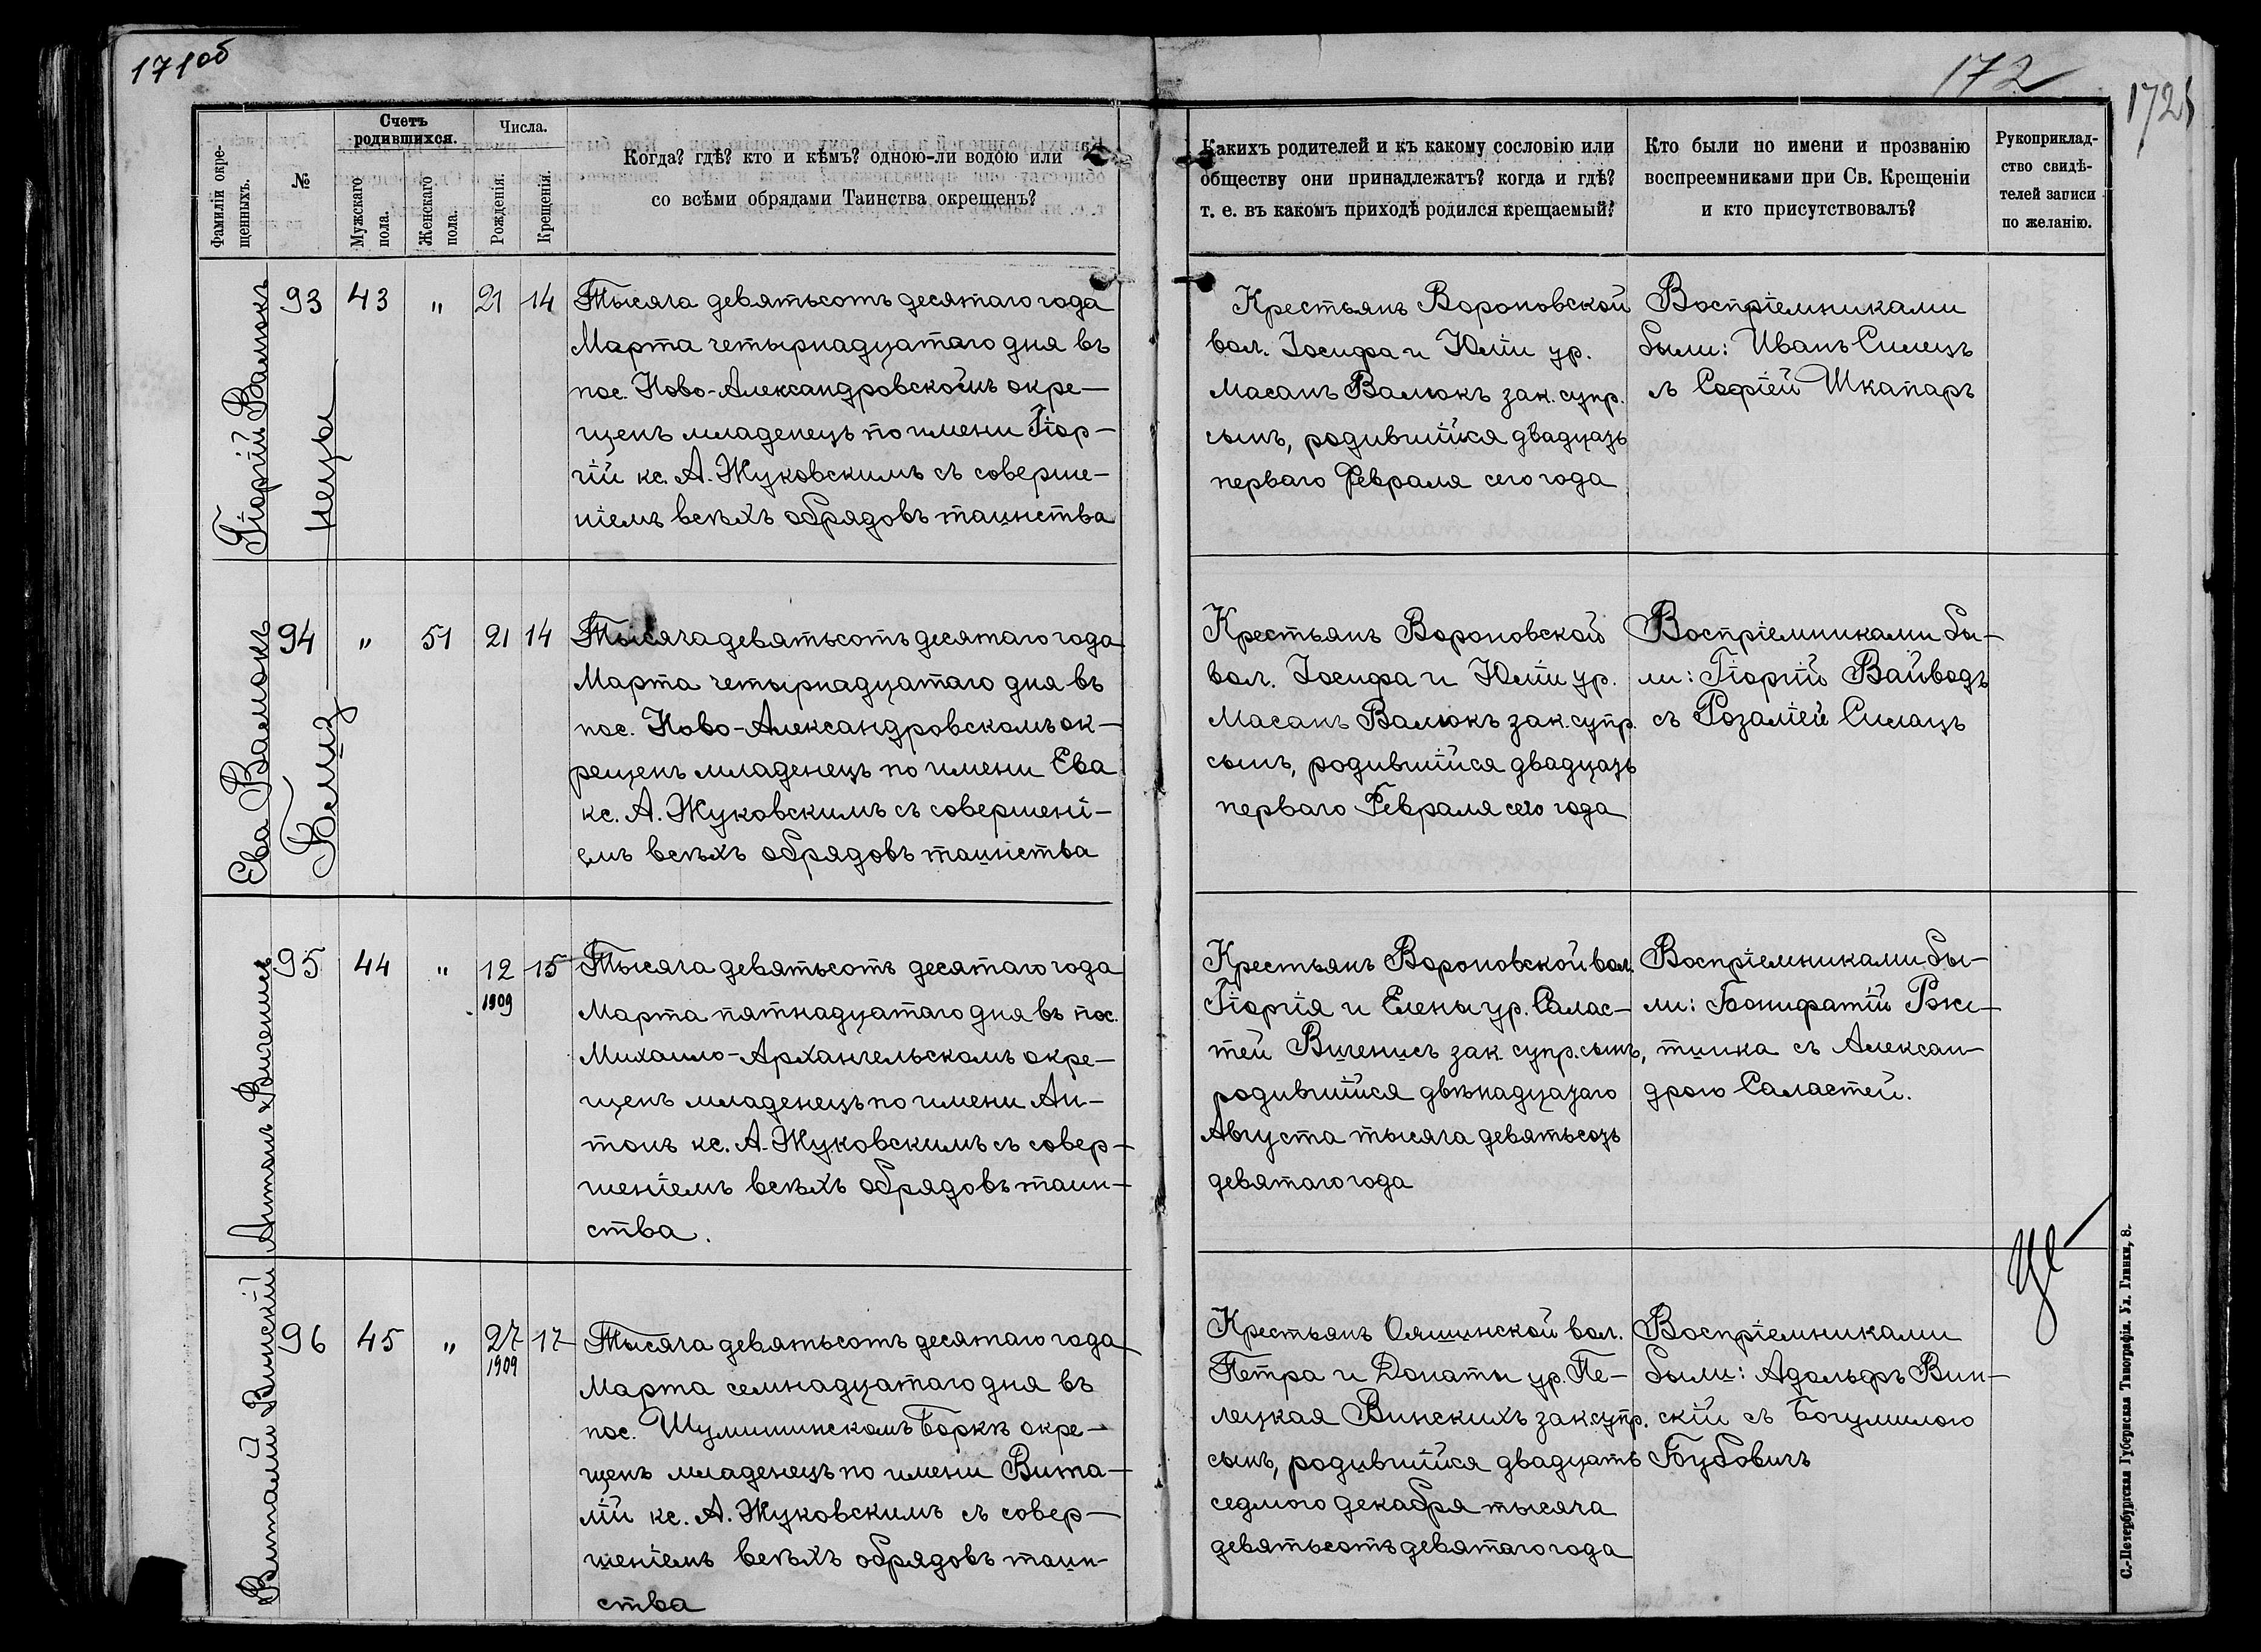 171об
172
172
Фамиліи окре-
щенныхъ.
№
Счетъ
родившихся.
Мужскаго
пола.
Женскаго
пола.
Числа.
Рожденія.
Крещенія.
Когда? гдѣ? кто и кѣмъ? одною-ли водою или
со всѣми обрядами Таинства окрещенъ?
Какихъ родителей и къ какому сословію или
обществу они принадлежатъ? когда и гдѣ?
т. е. въ какомъ приходѣ родился крещаемый?
Кто были по имени и прозванію
воспреемниками при Св. Крещеніи
и кто присутствовалъ?
Рукоприклад-
ство свидѣ-
телей записи
по желанію.
Гіоргій Валюкъ
Близнецы
93 43 „ 21 14
Тысяча девятьсотъ десятаго года
Марта четырнадцатаго дня въ
пос. Ново-Александровскомъ окре-
щенъ младенецъ по имени Гіор-
гій кс. А. Жуковскимъ съ соверше-
ніемъ всѣхъ обрядовъ таинства
Крестьянъ Вороновской
вол. Іосифа и Юліи ур.
Масанъ Валюкъ зак. супр.
сынъ, родившійся двадцать
перваго Февраля сего года
Воспріемниками
были: Иванъ Силецъ
съ Софіей Шкапаръ
Ева Валюкъ
94 „ 51 21 14
Тысяча девятьсотъ десятаго года
Марта четырнадцатаго дня въ
пос. Ново-Александровскомъ ок-
рещенъ младенецъ по имени Ева
кс. А. Жуковскимъ съ совершені-
емъ всѣхъ обрядовъ таинства
Крестьянъ Вороновской
вол. Іосифа и Юліи ур.
Масанъ Валюкъ зак. супр.
сынъ, родившійся двадцать
перваго Февраля сего года
Воспріемниками бы-
ли: Гіоргій Вайводъ
съ Розаліей Силацъ
Антонъ Виченисъ
95 44 „ 12 15
1909
Тысяча девятьсотъ десятаго года
Марта пятнадцатаго дня въ пос.
Михаило-Архангельскомъ окре-
щенъ младенецъ по имени Ан-
тонъ кс. А. Жуковскимъ съ совер-
шеніемъ всѣхъ обрядовъ таин-
ства.
Крестьянъ Вороновской вол.
Гіоргія и Елены ур. Салас-
тей Виченисъ зак. супр. сынъ,
родившійся двѣнадцатаго
Августа тысяча девятьсотъ
девятаго года
Воспріемниками бы-
ли: Бонифатій Рж-
тинка съ Алексан-
дрою Саластей.
Виталій Винскій
96 45 „ 27 17
1909
Тысяча девятьсотъ десятаго года
Марта семнадцатаго дня въ
пос. Шумишинскомъ Боркѣ окре-
щенъ младенецъ по имени Вита-
лій кс. А. Жуковскимъ съ совер-
шеніемъ всѣхъ обрядовъ таин-
ства
Крестьянъ Ояшинской вол.
Петра и Донаты ур. Пе-
лецкая Винскихъ зак. супр.
сынъ, родившійся двадцать
седмого декабря тысяча
девятьсотъ девятаго года
Воспріемниками
были: Адольфъ Вин-
скій съ Богумилою
Бубовичъ
С.-Петербургская Губернская Типографія. Ул. Глинки, 8.